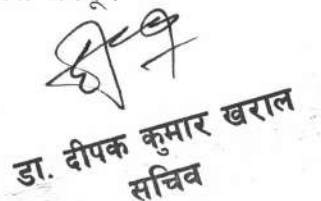 डा. दीपक कुमार खराल
सचिव